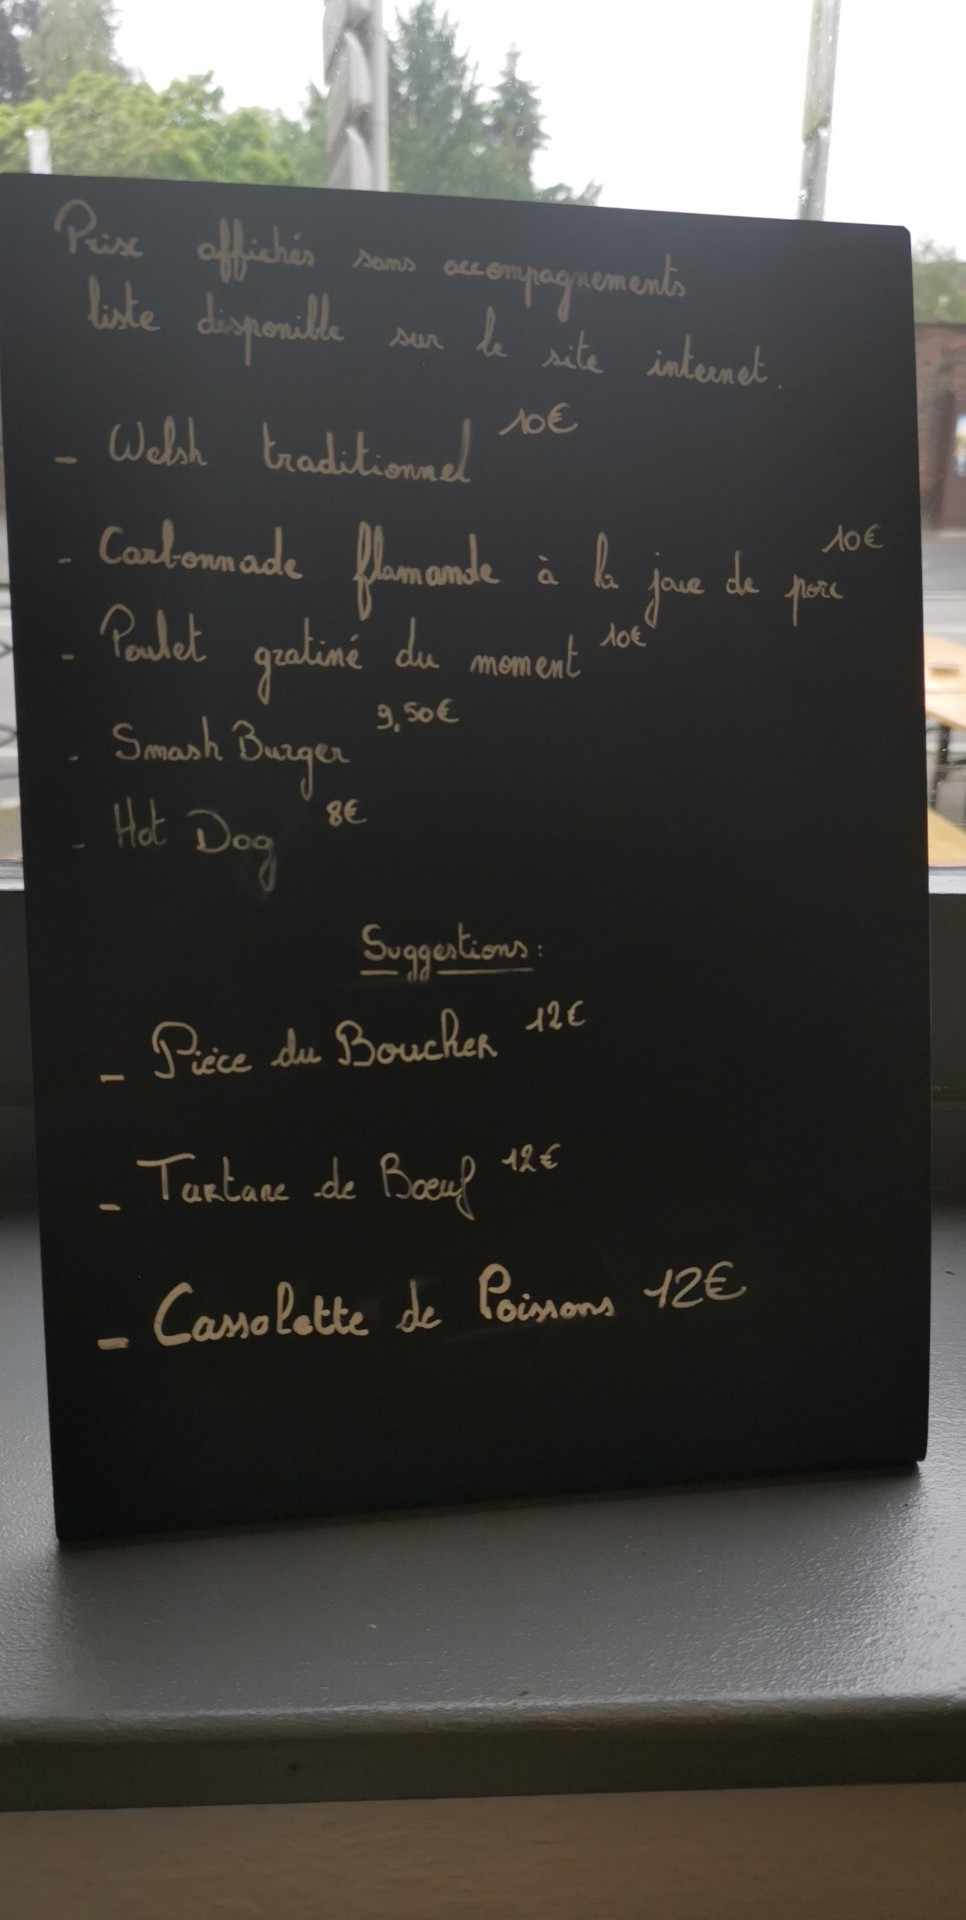 Prix affichés sans accompagnements
liste disponible sur le site internet.
- Welsh traditionnel 10€
- Carbonnade flamande à la joue de porc 10€
- Poulet gratiné du moment 10€
- Smash Burger 9,50€
- Hot Dog 8€
Suggestions:
- Pièce du Boucher 12€
- Tartare de Bœuf 12€
- Cassolette de Poissons 12€